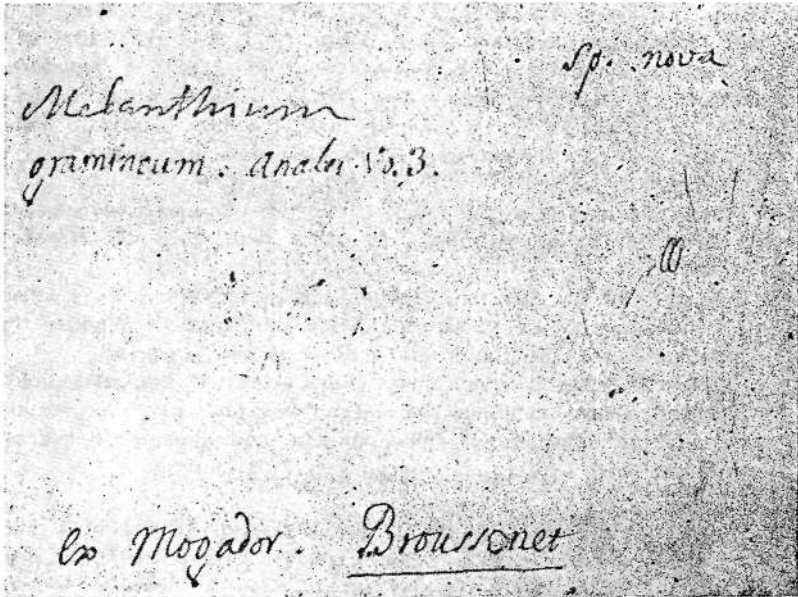 sp. nova
Melanthium
gramineum. Anales No. 3.
ex Mogador. Broussonet